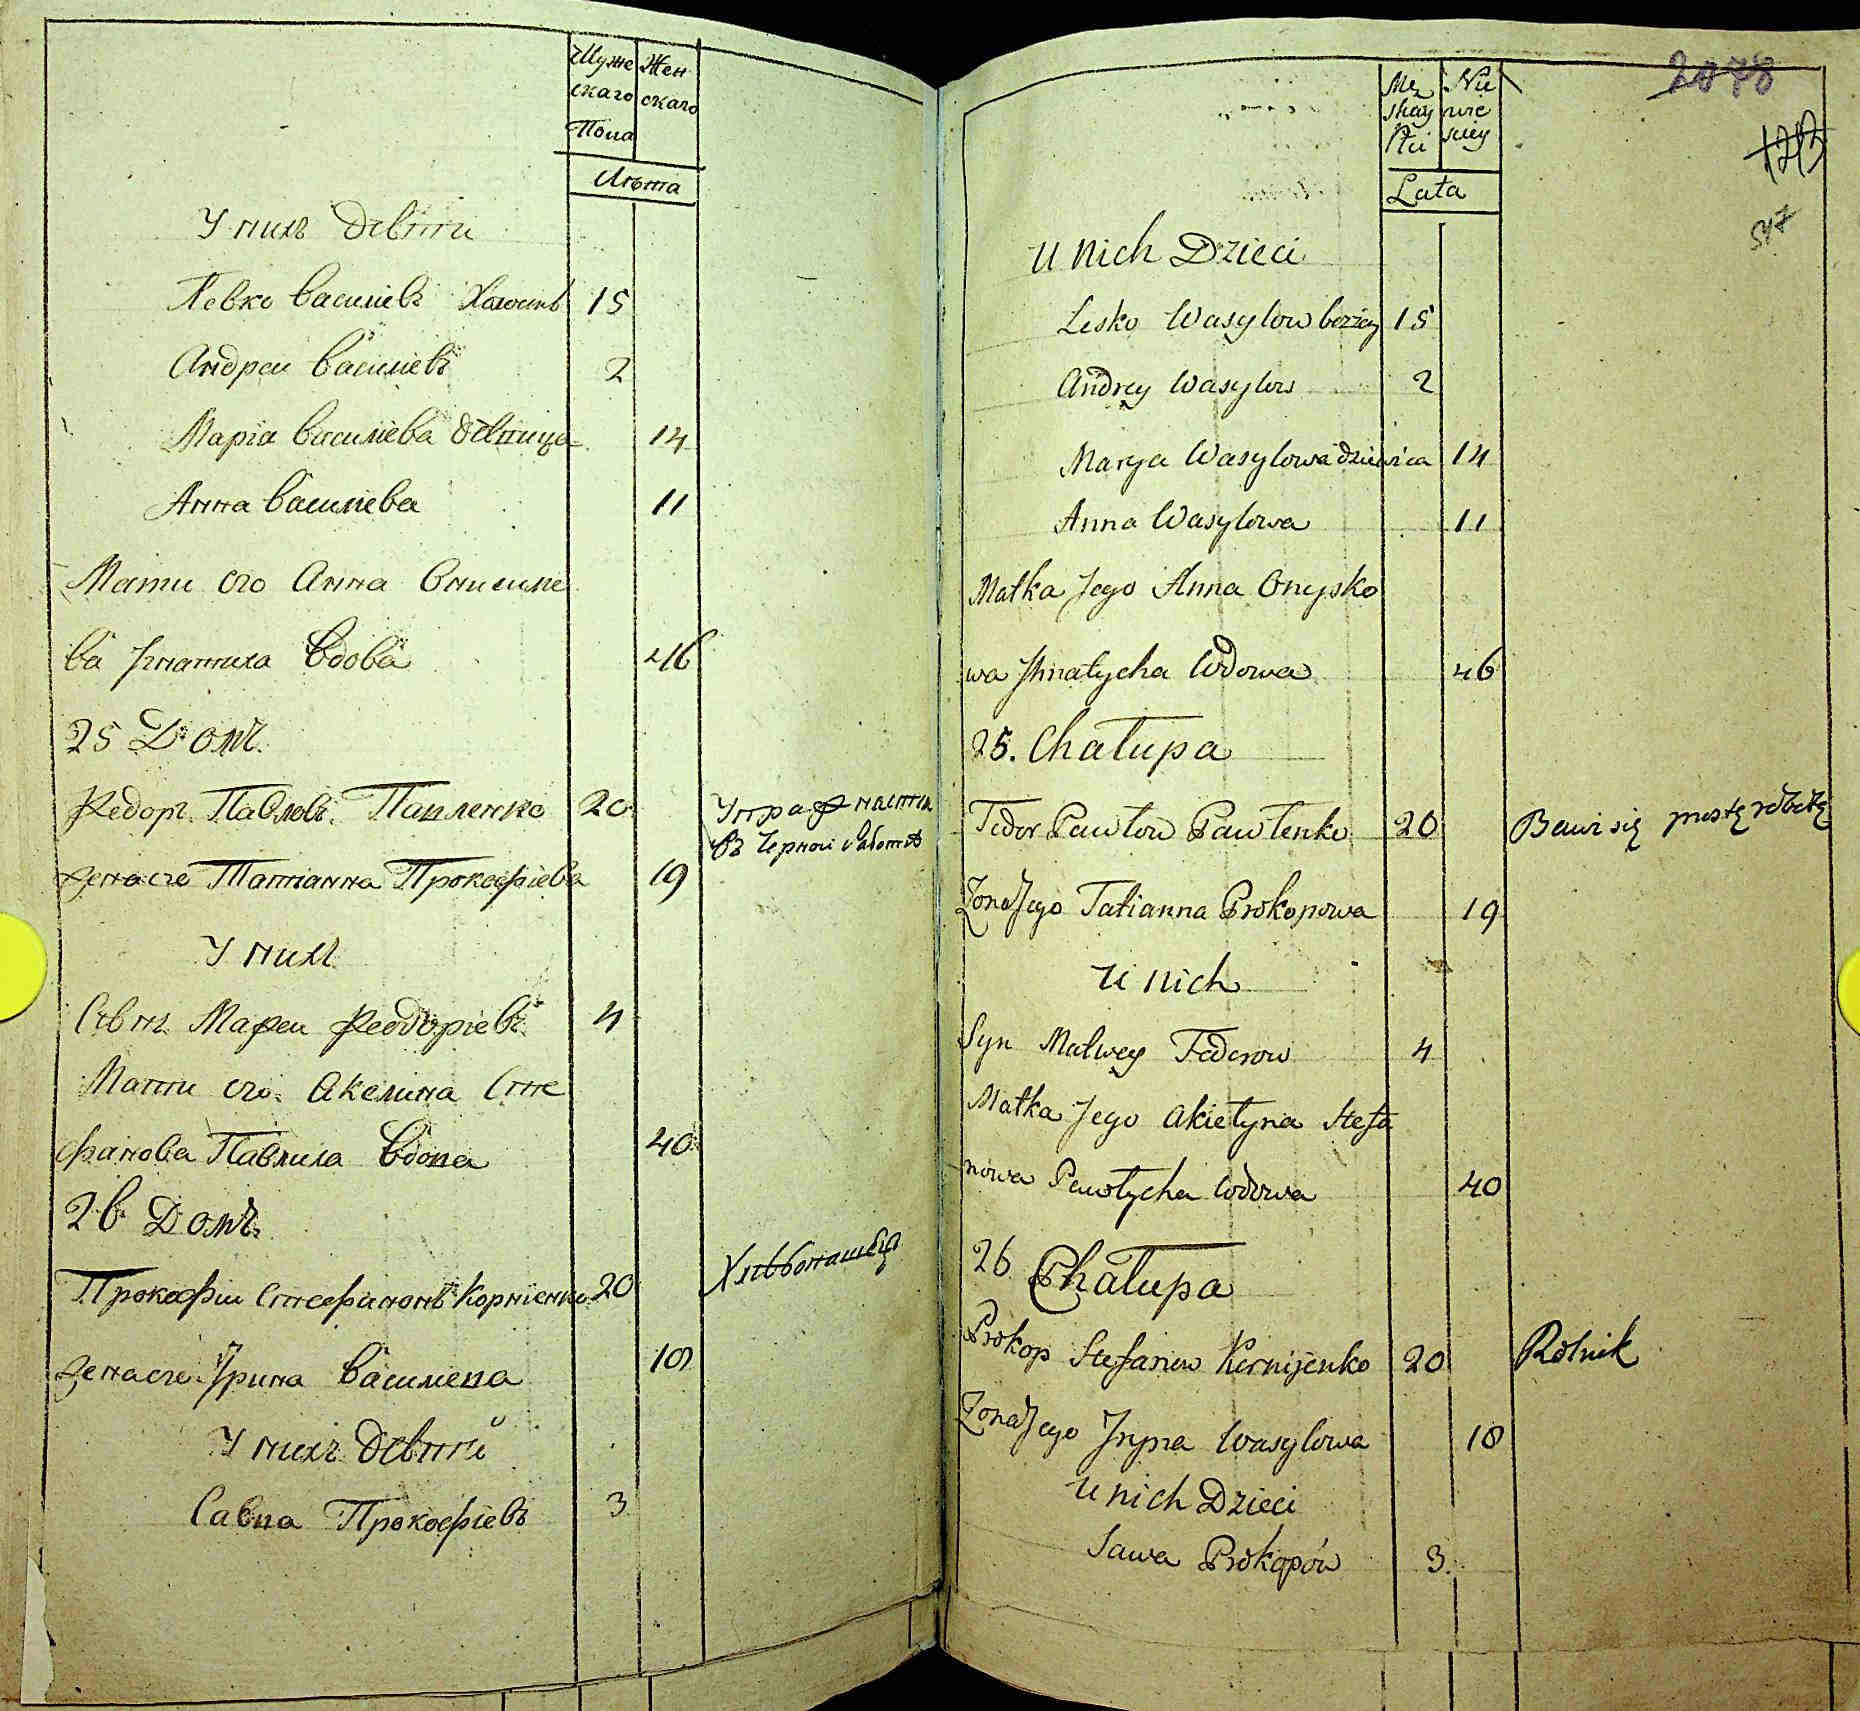 Муже Жен
скаго скаго
Пола
Лѣта
У нихъ дѣти
Левко Василіевъ Холостъ 15
Андреи Василіевъ 2
Маріа Василіева дѣвица 14
Анна Василіева 11
Мати его Анна Онисиме
ва Игнатиха Вдова 46
25 Домъ
Федоръ Павловъ Павленко 20
Упражняется
въ Черной работѣ
Жена его Татіанна Прокофіева 19
У нихъ
Сынъ Мафеи Феодоріевъ 4
Мати его Акелина Сте
фанова Павлиха Вдова 40
26 Домъ
Хлѣбопашецъ
Прокофіи Стефановъ Корніенко 20
Жена его Ирина Василева 18
У нихъ дѣти
Савва Прокофіевъ 3
2078
123
547
Męz Nie
skay wie
Płci sciey
Lata
u nich Dzieci
Lesko Wasylow bezżey 15
Andrey Wasylow 2
Marya Wasylowa dziewica 14
Anna Wasylowa 11
Matka Jego Anna Onysko
wa Ihnatycha Wdowa 46
25. Chałupa
Fedor Pawłow Pawłenko 20 Bawi się prostę robotę
Zona Jego Tatianna Prokopowa 19
u nich
Syn Matwey Fedorow 4
Matka Jego Akiełyna Stefa
nowa Pawłycha Wdowa 40
26 Chałupa
Prokop Stefanow Kornijenko 20 Rolnik
Zona Jego Jryna Wasylowa 18
u nich Dzieci
Sawa Prokopów 3.